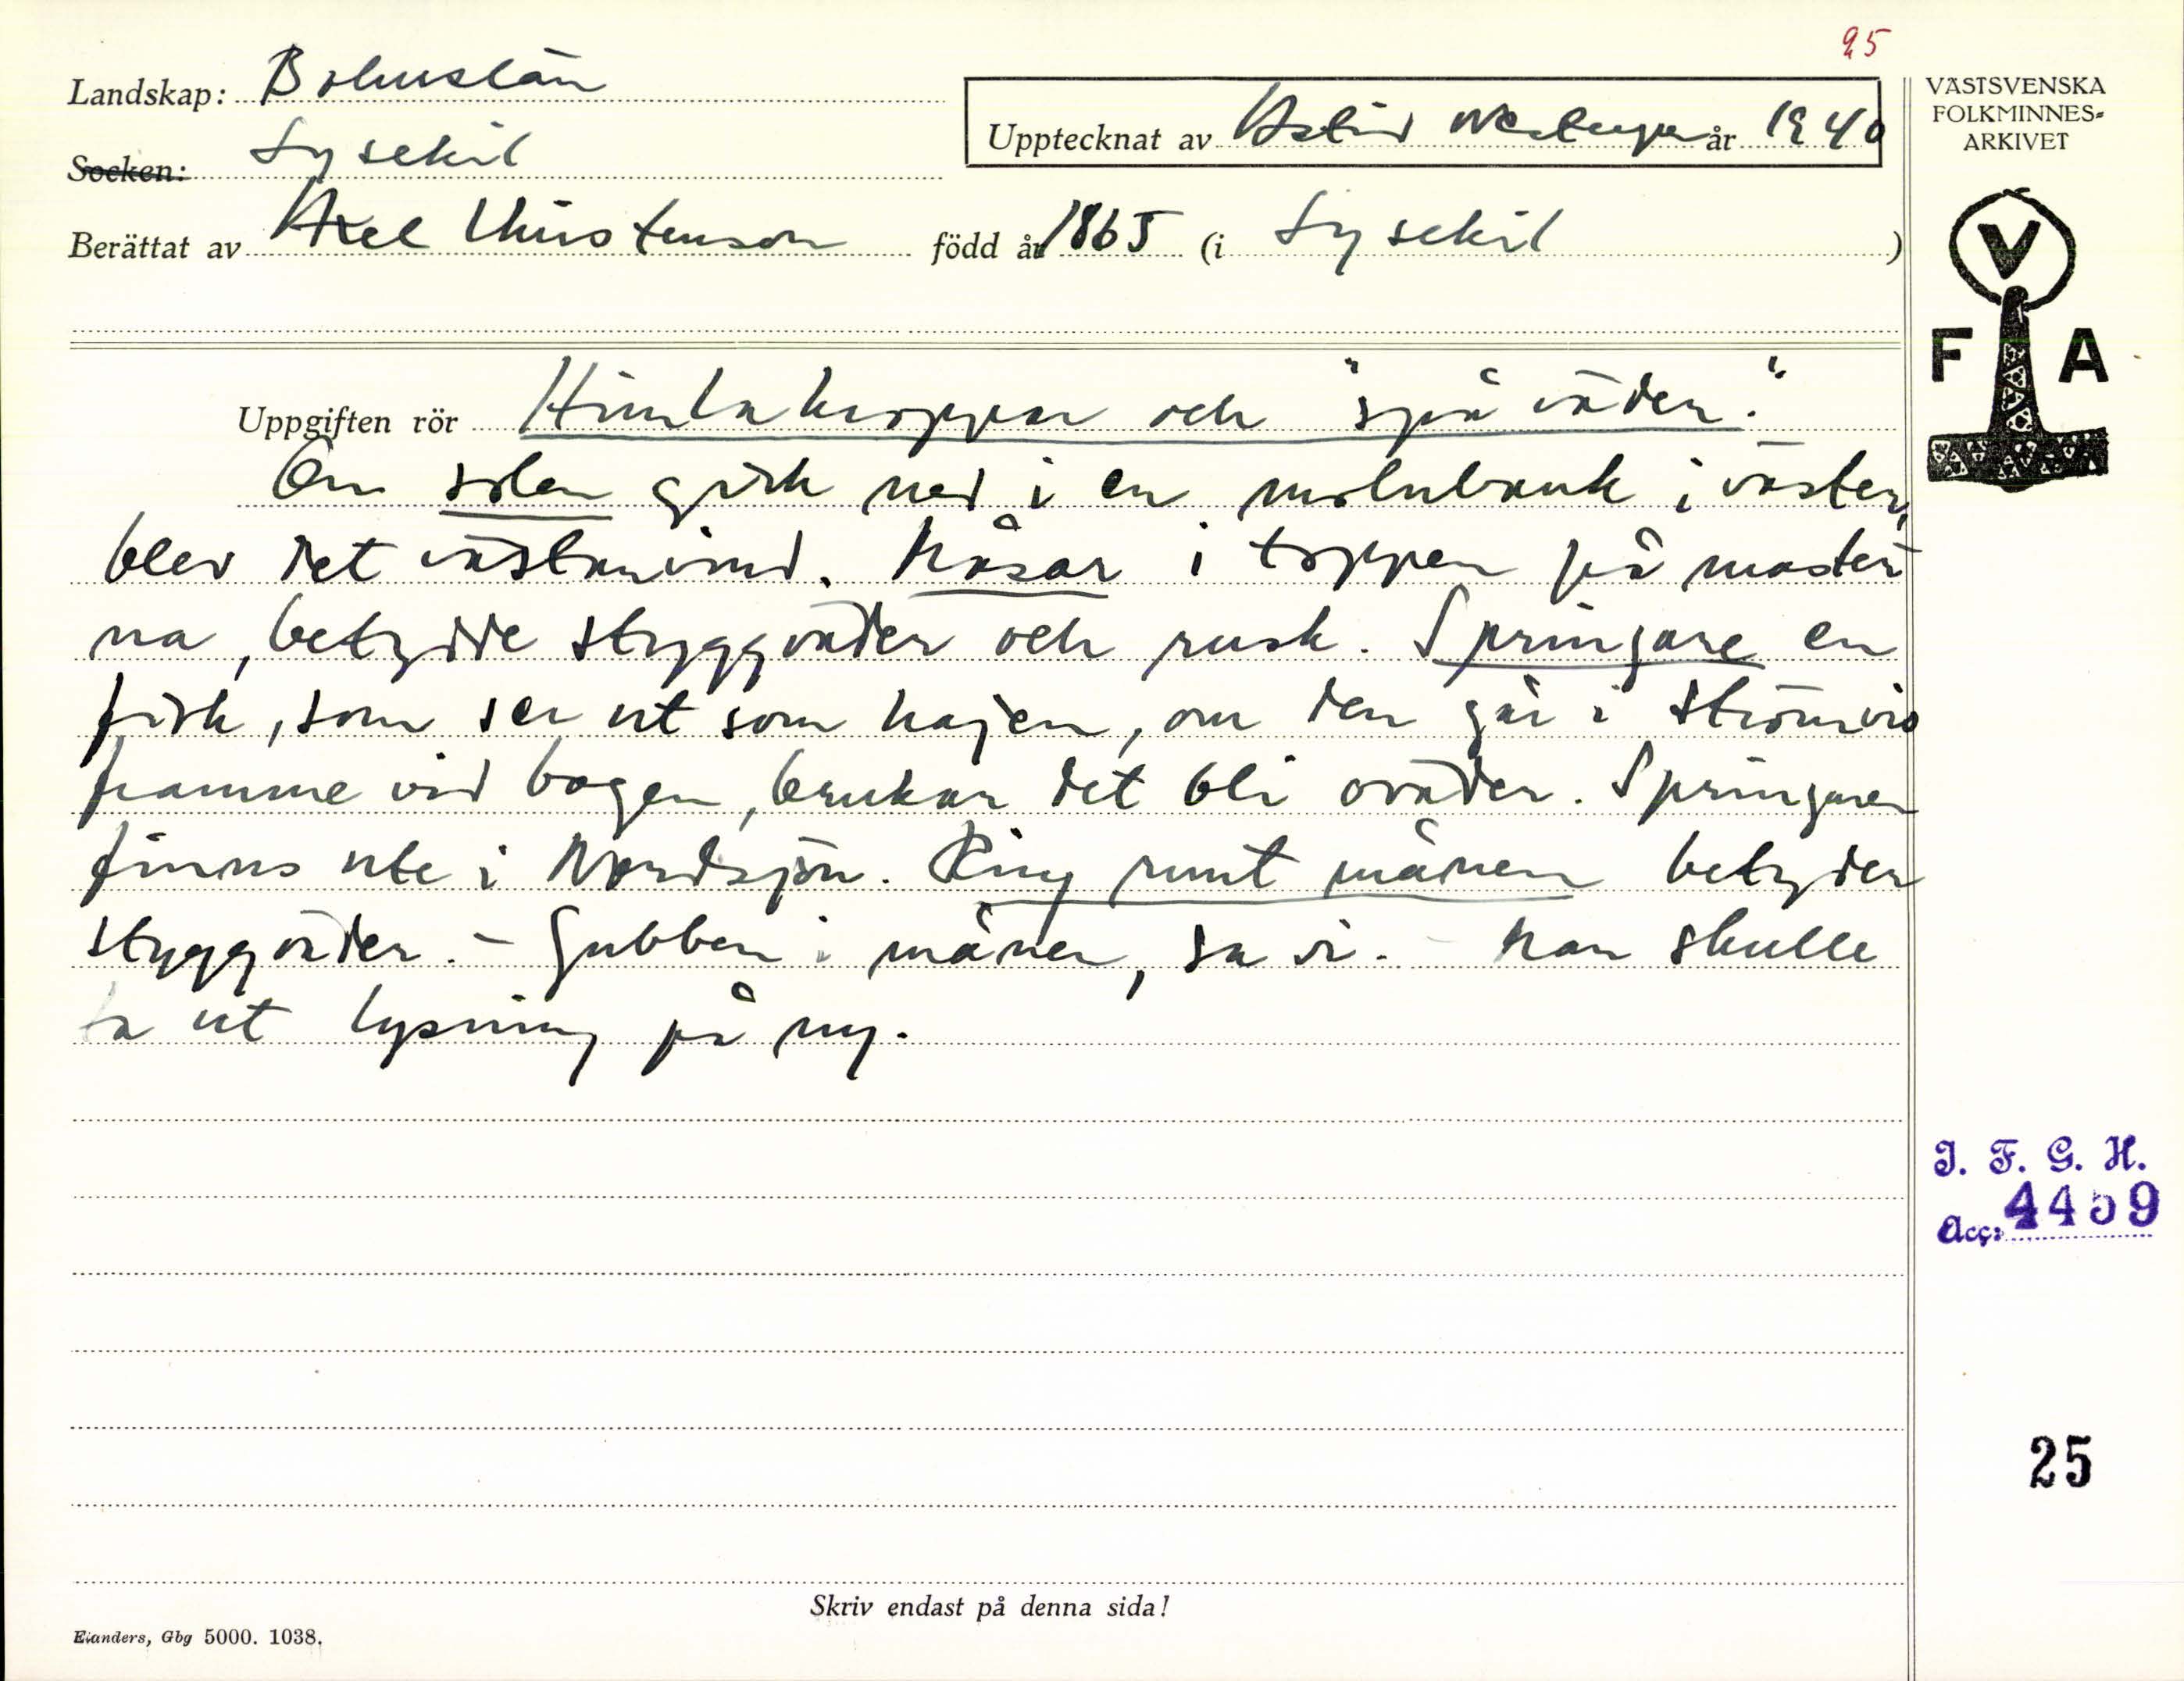 25
Landskap: Bohuslän
Upptecknat av Astrid år 1940
VÄSTSVENSKA
FOLKMINNES-
ARKIVET
Socken: Lysekil
Berättat av Axel Christenson född år 1865 (i Lysekil )
V
F A
Uppgiften rör Himlakroppar och "spå väder."
Om solen gick ned i en molnbank i väster,
blev det västanvind. Måsar i toppen på master
na, betydde styggväder och rusk. Springare en
fisk, som ser ut som hajen, om den går i strömvis
framme vid bogen, brukar det bli oväder. Springaren
finns ute i Nordsjön. Ring runt månen betyder
styggväder. - Gubben i månen, sa vi. - Man skulle
ta ut lysning på ny.
I. F. G. H.
Acc: 4459
25
Skriv endast på denna sida!
Elanders, Gbg 5000. 1038.